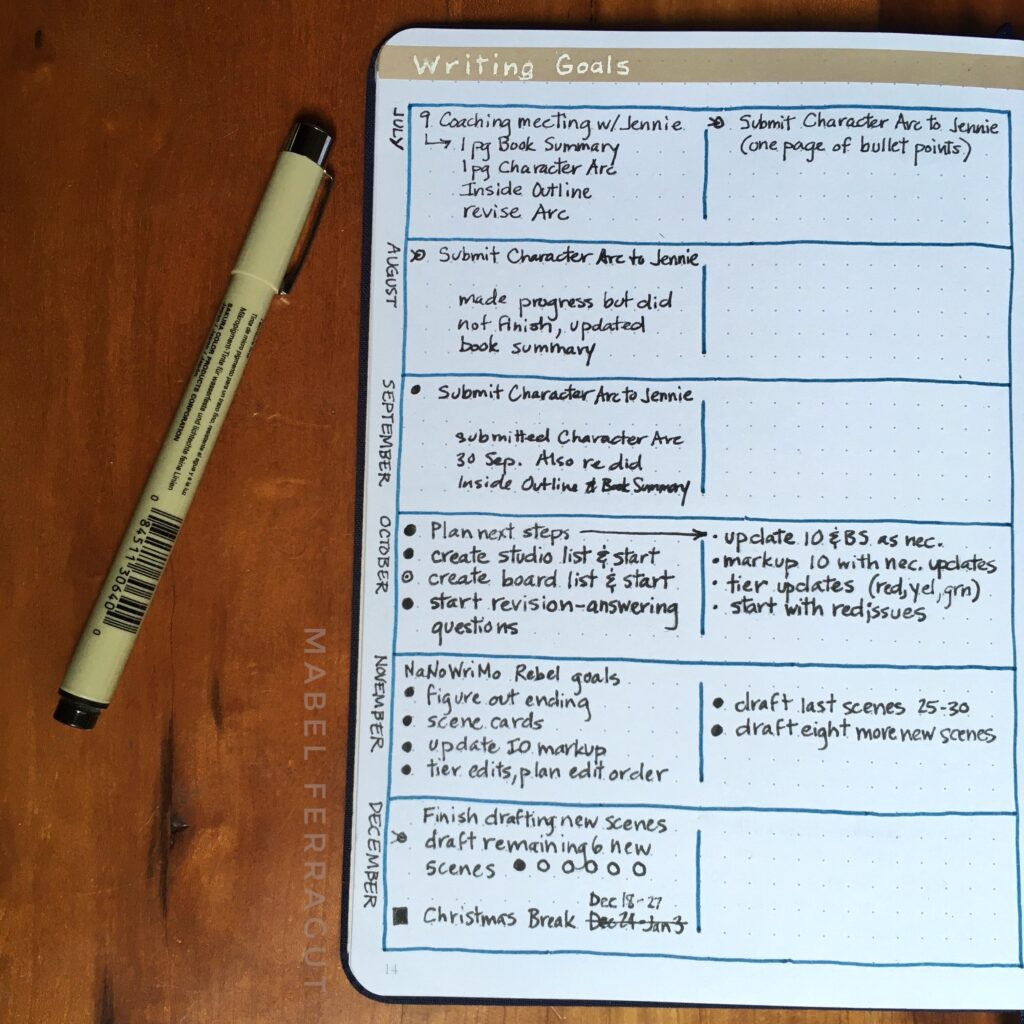 Writing Goals
JULY
9 Coaching meeting w/Jennie
1 pg Book Summary
1pg Character Arc
Inside Outline
revise Arc
Submit Character Arc to Jennie
(one page of bullet points)
AUGUST
Submit Character Arc to Jennie
made progress but did
not finish, updated
book summary
SEPTEMBER
Submit Character Arc to Jennie
submitted Character Arc
30 Sep. Also re did
Inside Outline & Book Summary
OCTOBER
Plan next steps
create studio list & start
create board list & start
start revision-answering
questions
update IO & BS as nec.
markup IO with nec. updates
tier updates (red, yel, grn)
start with red issues
NOVEMBER
NaNoWriMo Rebel goals
figure out ending
scene cards
update IO markup
tier edits, plan edit order
draft last scenes 25-30
draft eight more new scenes
DECEMBER
Finish drafting new scenes
draft remaining 6 new
scenes
Dec 18-27
Christmas Break Dec 24-Jan 3
14
MABEL FERRAGUT
SAKURA COLOR PRODUCTS CORPORATION
0 84511 30640 0